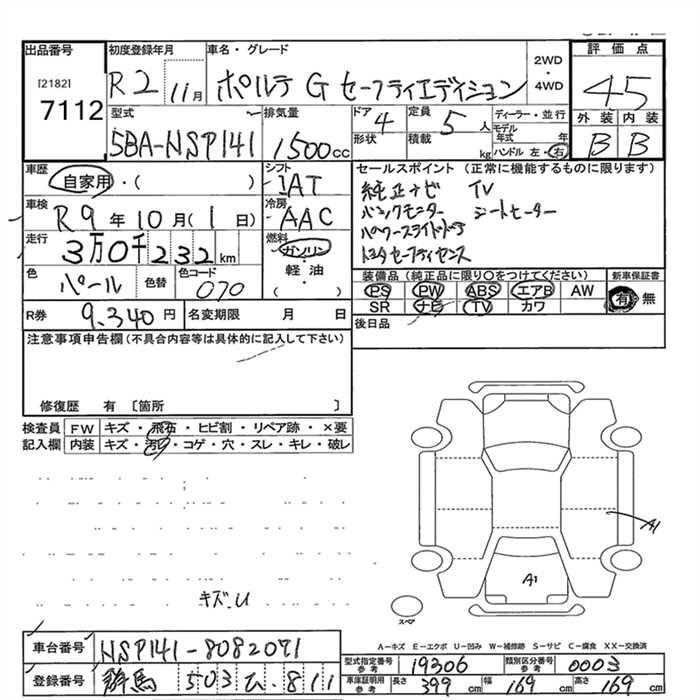 出品番号 初度登録年月 車名・グレード 2WD ・ 4WD 評価点
[2182] 7112 R2 11月 ポルテ G セーフティエディション 45
型式 排気量 ドア 4 定員 5人 ディーラー・並行 外装 内装
5BA-NSP141 1500cc 形状 積載 kg モデル年式 年 ハンドル 左・右 B B
車歴 自家用・( ) シフト IAT セールスポイント (正常に機能するものに限ります)
純正ナビ TV
車検 R9年10月(1日) 冷房 AAC
バックモニター シートヒーター
パワースライドドア
走行 3万0千232km 燃料 ガソリン・軽油・( )
トヨタセーフティセンス
色 パール 色替 色コード 070
装備品(純正品に限り○をつけてください) 新車保証書
PS PW ABS エアB AW 有・無
SR ナビ TV カワ
R券 9,340円 名変期限 月 日 後日品
注意事項申告欄(不具合内容等は具体的に記入して下さい)
修復歴 有 [箇所 ]
検査員 FW キズ・飛石・ヒビ割・リペア跡・×要
記入欄 内装 キズ・汚れ・コゲ・穴・スレ・キレ・破レ
A1
A1
キズ.U
スペア
A-キズ E-エクボ U-凹み W-補修跡 S-サビ C-腐食 XX-交換済
車台番号 NSP141-8082071
型式指定番号 参考 19306 類別区分番号 参考 0003
登録番号 群馬 503 ひ 811
車庫証明用 参考 長さ 399cm 幅 169cm 高さ 169cm